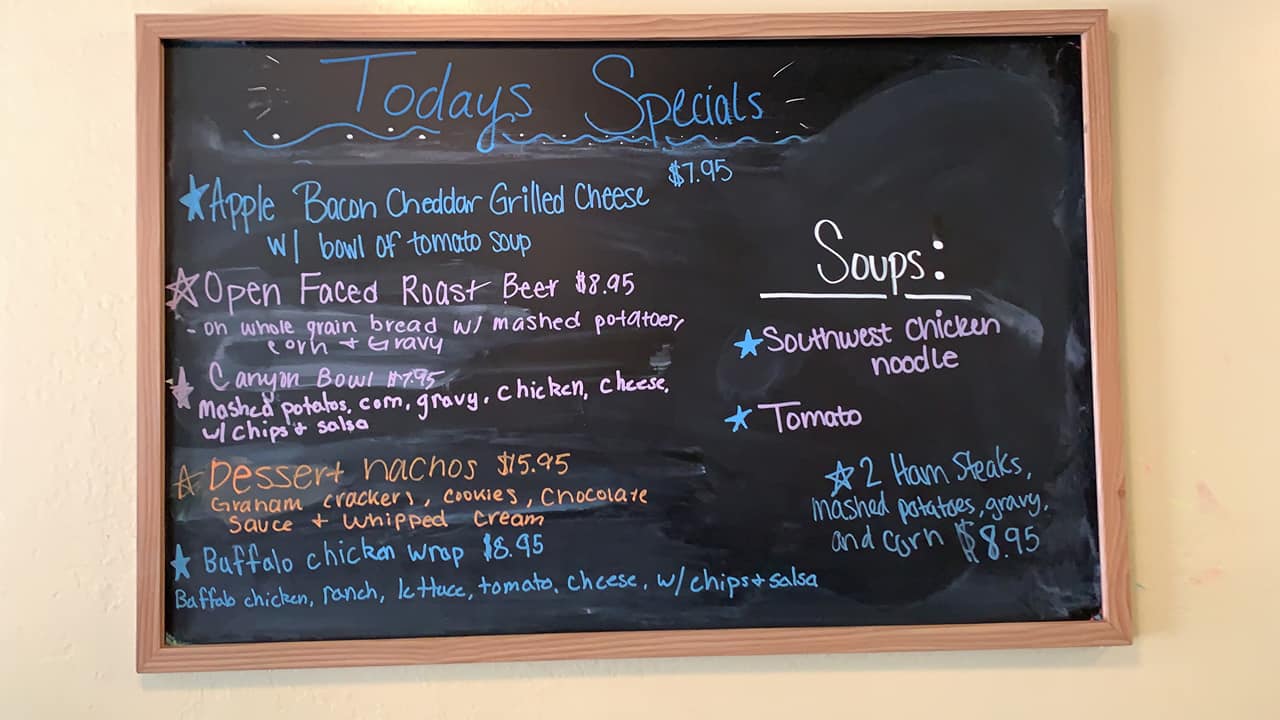 Todays Specials
★Apple Bacon Cheddar Grilled Cheese $7.95
w/ bowl of tomato soup
☆Open Faced Roast Beef $8.95
- on whole grain bread w/ mashed potatoes,
corn + Gravy
★ Canyon Bowl $7.95
Mashed potatos, corn, gravy, chicken, cheese,
w/ chips + salsa
☆Dessert nachos $5.95
Graham crackers, cookies, Chocolate
Sauce + Whipped Cream
★ Buffalo chicken wrap $8.95
Buffalo chicken, ranch, lettuce, tomato, cheese, w/ chips + salsa
Soups:
★Southwest Chicken
noodle
★ Tomato
☆2 Ham Steaks,
mashed potatoes, gravy,
and corn $8.95